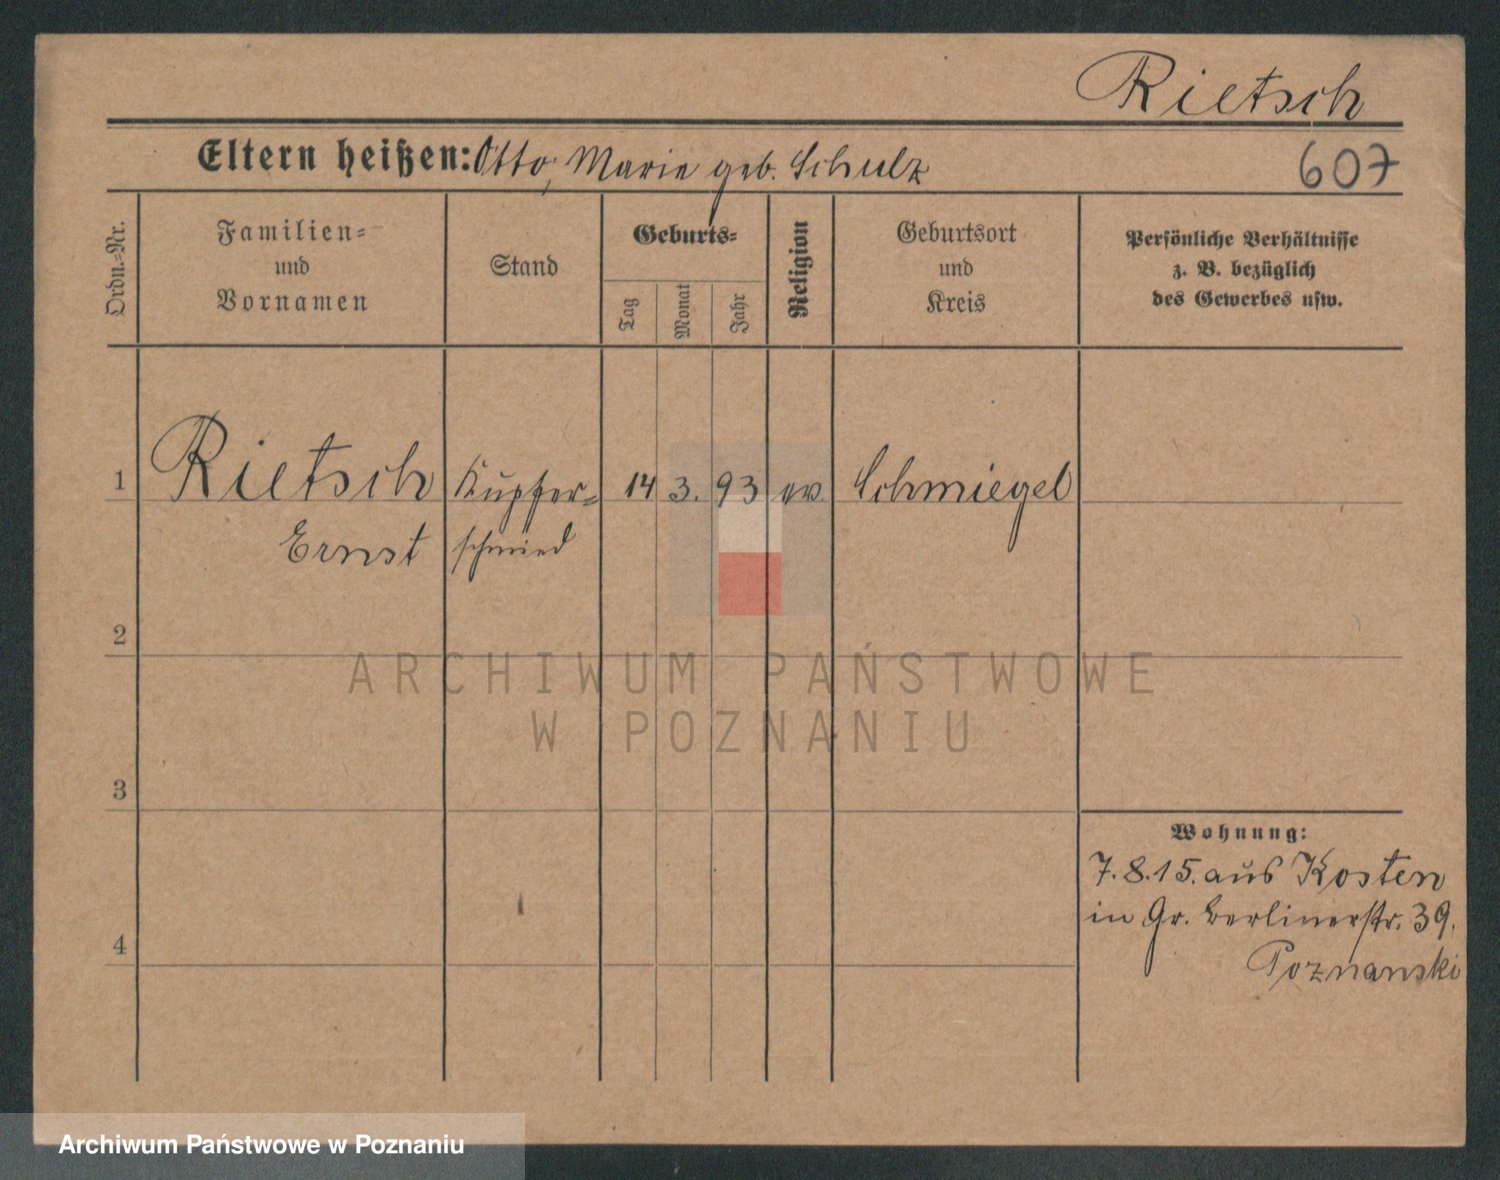 Rietsch
Eltern heißen: Otto, Marie geb. Schulz
607
Ordn.-Nr.
Familien-
und
Vornamen
Stand
Geburts-
Tag
Monat
Jahr
Religion
Geburtsort
und
Kreis
Persönliche Verhältnisse
z. B. bezüglich
des Gewerbes usw.
1 Rietsch Kupfer- 14 3. 93 ev Schmiegel
Ernst schmied
2
3
4
Wohnung:
7.8.15. aus Kosten
in Gr. Berlinerstr. 39.
Poznanski
ARCHIWUM PAŃSTWOWE
W POZNANIU
Archiwum Państwowe w Poznaniu